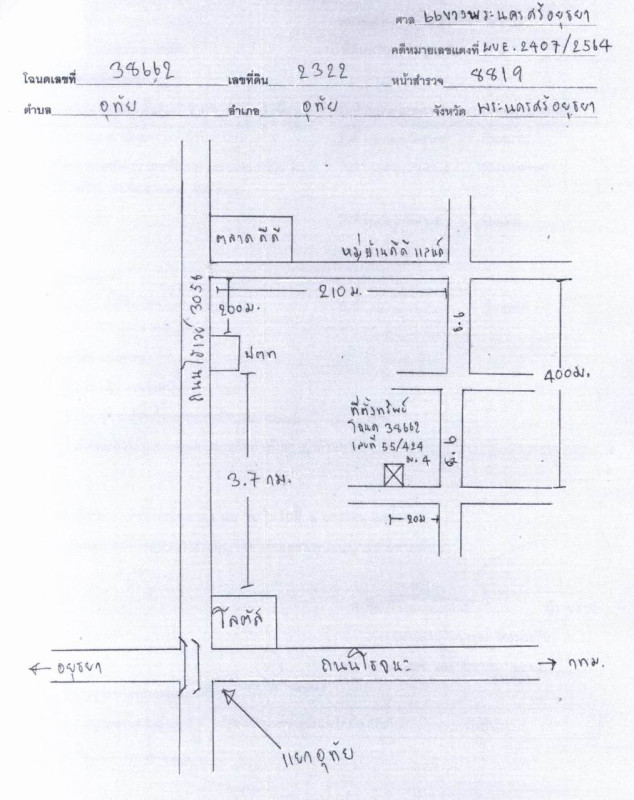 ศาล แขวงพระนครศรีอยุธยา
คดีหมายเลขแดงที่ ผบE.2407/2564
โฉนดเลขที่ 38662 เลขที่ดิน 2322 หน้าสำรวจ 8819
ตำบล อุทัย อำเภอ อุทัย จังหวัด พระนครศรีอยุธยา
ตลาด ดีดี
หมู่บ้านดีดี แลนด์
ถนนไฮเวย์ 3056
210 ม.
200ม.
ซ.6
ปตท
400ม.
ที่ตั้งทรัพย์
โฉนด 38662
เลขที่ 55/424
ม.4
ซ.6
3.7 กม.
20ม
โลตัส
← อยุธยา
ถนนโรจนะ
→ กทม.
แยกอุทัย